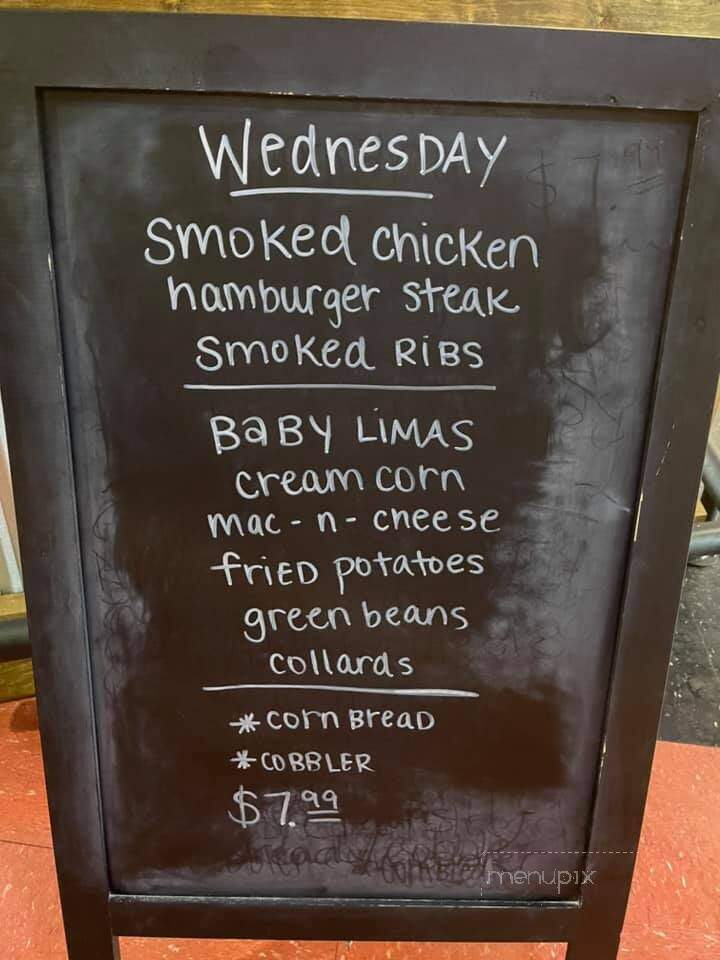 Wednesday
Smoked chicken
hamburger steak
Smoked RiBS
BaBY LiMAS
cream corn
mac-n-cheese
friED potatoes
green beans
collards
*corn BreaD
*COBBLER
$7.99
menupix